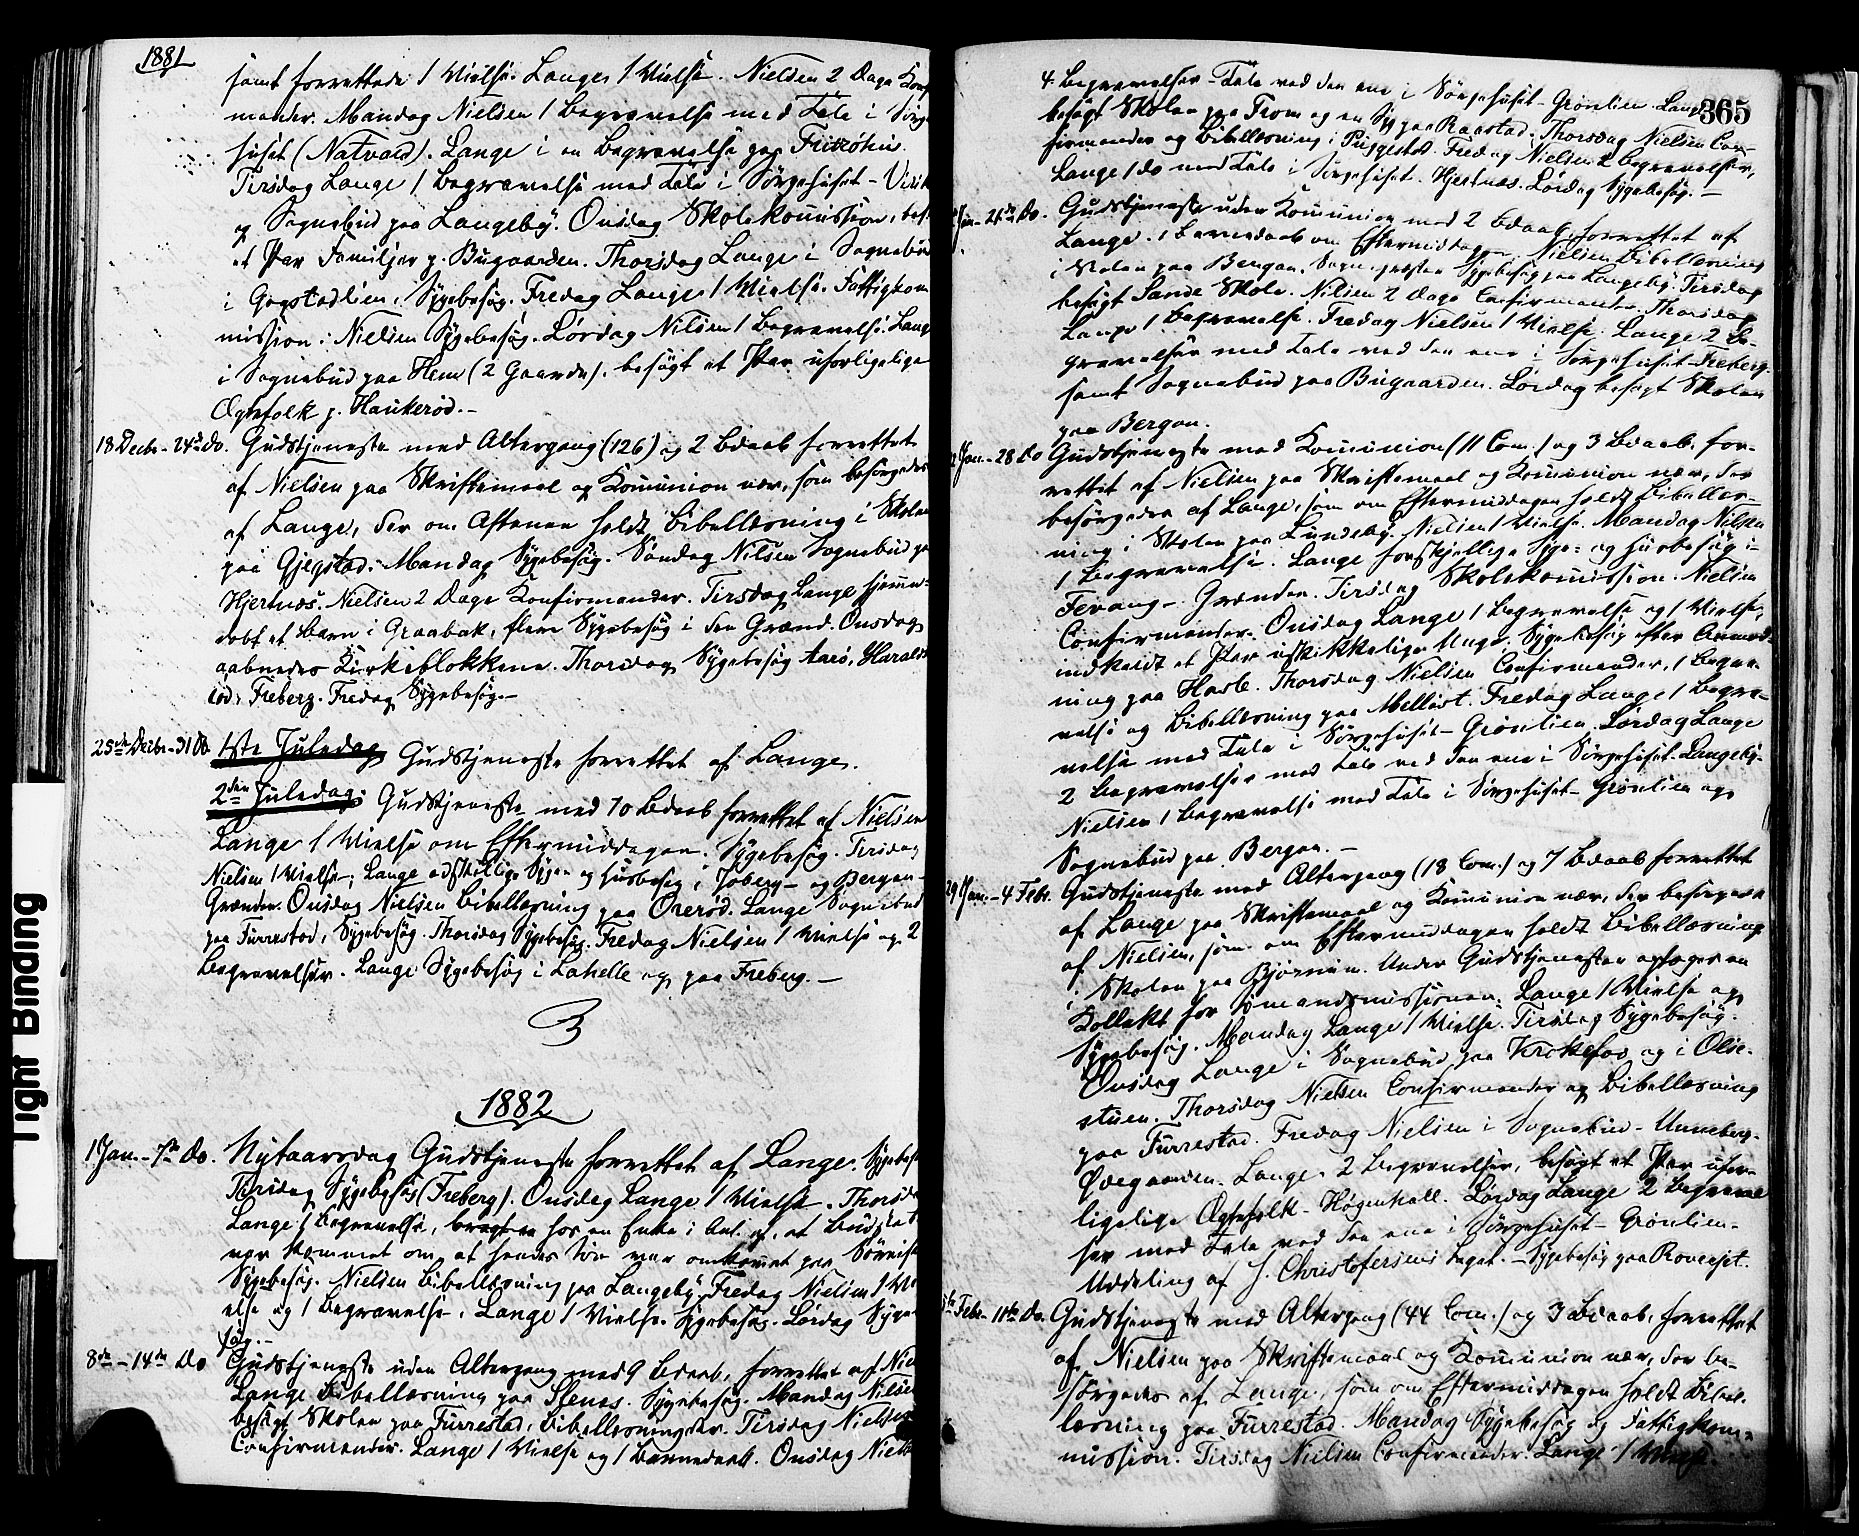 1881
samt forrettede 1 Vielse. Lange 1 Vielse. Nielsen 2 Dage Konf
mander. Mandag Nielsen 1 Begravelse med Tale i Sørge
huset (Natvald). Lange i en Begravelse paa Fritzöhus.
Tirsdag Lange 1 Begravelse med Tale i Sørgehuset - Virik
og Sognebud paa Langeby. Onsdag Skolekommission, bes.
et Par Familjer p. Bugaarden. Thorsdag Lange i Sognebud
i Gogstadlien, Sygebesøg. Fredag Lange 1 Vielse. Fattigkom
mission. Nielsen Sygebesøg. Lørdag Nilsen 1 Begravelse. Lange
i Sognebud paa Hem (2 Gaarde). besøgt et Par uforligelige
Ægtefolk p. Haukerød.-
18 Decbr - 24de Do. Gudstjeneste med Altergang (126) og 2 Bdaab forrettet
af Nielsen paa Skriftemaal og Kommunion nær, som besørgedes
af Lange, der om Aftenen holdt Bibellæsning i Skolen
paa Gjegstad. Mandag Sygebesøg. Søndag Nilsen Sognebud paa
Hjertnæs. Nielsen 2 Dage Konfirmander. Tirsdag Lange hjemme-
døbt et Barn i Graabæk, flere Sygebesøg i den Grænd. Onsdag
aabnedes Kirkeblokkene. Thorsdag Sygebesøg Aarø, Haralds
rød, Freberg. Fredag Sygebesøg.-
25de Decbr - 31 Do. 1ste Juledag Gudstjeneste forrettet af Lange.
2den Juledag: Gudstjeneste med 10 Bdaab forrettet af Nielsen
Lange 1 Vielse om Eftermiddagen. Sygebesøg. Tirsdag
Nielsen 1 Vielse; Lange adskillige Syge og Husbesøg i Joberg- og Bergan-
Grænder. Onsdag Nielsen Bibellæsning paa Orerød. Lange Sognebud
paa Furrestad, Sygebesøg. Thorsdag Sygebesøg. Fredag Nielsen 1 Vielse og 2
Begravelser. Lange Sygebesøg i Lahelle og paa Freberg.-
1882
1 Jan. - 7de Do. Nytaarsdag Gudstjeneste forrettet af Lange. Sygebesøg
Tirsdag Sygebesøg (Freberg). Onsdag Lange 1 Vielse. Thorsdag
Lange 1 Begravelse, hos en Enke i Anl. af, at Budskab
var kommet om, at hendes Søn var omkommet paa
Sygebesøg. Nielsen Bibellæsning paa Langeby. Fredag Nielsen 1 Vi
else og 1 Begravelse. Lange 1 Vielse. Sygebesøg. Lørdag Sygebe
søg.-
8de - 14de Do Gudstjeneste uden Altergang med 9 Bdaab, forrettet af Niel
Lange Bibellæsning paa Stenes. Sygebesøg. Mandag Nilsen
besøgt Skolen paa Furrestad, Bibellæsning der. Tirsdag Nielsen
Confirmander. Lange 1 Vielse og 1 Barnedaab. Onsdag Niels
365
4 Begravelser - Tale ved den ene i Sørgehuset - Grønlien. Lange
besøgt Skolen paa From og en Syg paa Raastad. Thorsdag Nielsen Con-
firmander og Bibellæsning i Preggestad. Fredag Nielsen 2 Begravelser,
Lange 1 do med Tale i Sørgehuset. Hjertnæs. Lørdag Sygebesøg.-
Jan - 21de Do. Gudstjeneste uden Kommunion med 2 Bdaab, forrettet af
Lange. 1 Barnedaab om Eftermiddag. Nielsen Bibellæsning
i Skolen paa Bergan. Sognepresten Sygebesøg paa Langeby. Tirsdag
besøgt Sande Skole. Nilsen 2 Dage Confirmander. Thorsdag
Lange 1 Begravelse. Fredag Nielsen 1 Vielse. Lange 2 Be-
gravelser med Tale ved den ene i Sørgehuset - Freberg.
samt Sognebud paa Bugaarden. Lørdag besøgt Skolen
paa Bergan.
Jan. - 28 Do Gudstjeneste med Kommunion (11 Com.) og 3 Bdaab. for-
rettet af Nielsen paa Skriftemaal og Kommunion nær, der
besørgedes af Lange, som om Eftermiddagen holdt Bibellæs-
ning i Skolen paa Lundeby. Nielsen 1 Vielse. Mandag Nilsen
1 Begravelse. Lange forskjellige Syge- og Husbesøg i
Fevang - Grænden. Tirsdag Skolekommission. Nielsen
Confirmander. Onsdag Lange 1 Begravelse og 1 Vielse;
indkaldt et Par uskikkelige Unge. Sygebesøg efter Anmod-
ning paa Hasle. Thorsdag Nielsen Confirmander, 1 Begra-
velse og Bibellæsning paa Melløst. Fredag Lange 1 Begra-
velse med Tale i Sørgehuset - Grønlien. Lørdag Lange
2 Begravelser med Tale ved den ene i Sørgehuset - Langeby.
Nielsen 1 Begravelse med Tale i Sørgehuset - Grønlien og
Sognebud paa Bergan.-
29 Jan. - 4 Febr. Gudstjeneste med Altergang (18 Com.) og 7 Bdaab forrettet
af Lange paa Skriftemaal og Kommunion nær, der besørgedes
af Nielsen, som om Eftermiddagen holdt Bibellæsning
i Skolen paa Bjørnum. Under Gudstjenesten optoges en
Kollekt for Sømandsmissionen. Lange 1 Vielse og
Sygebesøg. Mandag Lange 1 Vielse. Tirsdag Sygebesøg.
Onsdag Lange i Sognebud paa Krokefos og i Olse-
stuen. Thorsdag Nielsen Confirmander og Bibellæsning
paa Furrestad. Fredag Nielsen i Sognebud - Unneberg-
Ødegaarden. Lange 2 Begravelser, besøgt et Par ufor-
ligelige Ægtefolk - Høgenhall. Lørdag Lange 2 Begravel
ser med Tale ved den ene i Sørgehuset - Grønlien-
Uddeling af J. Christofersens Legat. - Sygebesøg paa
Febr. - 11te Do. Gudstjeneste med Altergang (44 Com.) og 3 Bdaab, forrettet
af Nielsen paa Skriftemaal og Kommunion nær, der be-
sørgedes af Lange, som om Eftermiddagen holdt Bibel-
læsning paa Furrestad. Mandag Sygebesøg og Fattigkom-
mission. Tirsdag Nielsen Confirmander. Lange 1 Vielse.
Tight Binding